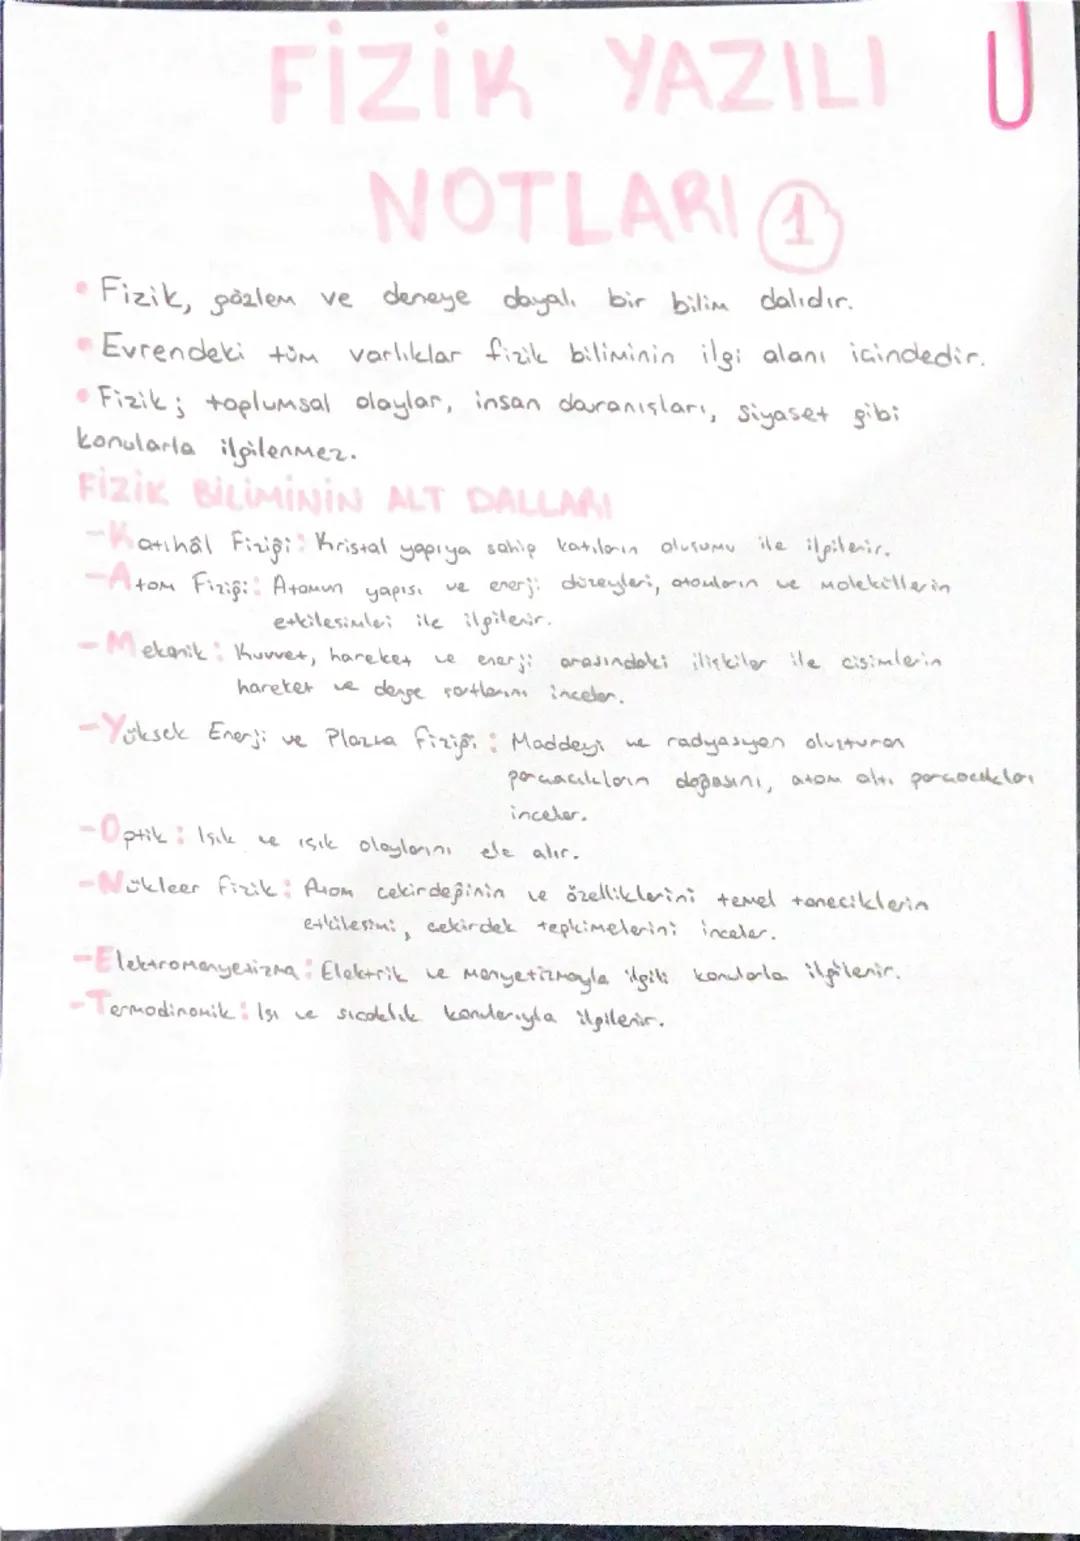 FİZİK YAZILI
NOTLARI 1
• Fizik, gözlem ve deneye dayalı bir bilim dalıdır.
• Evrendeki tüm varlıklar fizik biliminin ilgi alanı içindedir.
• Fizik; toplumsal olaylar, insan davranışları, siyaset gibi
konularla ilgilenmez.
FİZİK BİLİMİNİN ALT DALLARI
-Katıhâl Fiziği: Kristal yapıya sahip katıların oluşumu ile ilgilenir.
-Atom Fiziği: Atomun yapısı ve enerji düzeyleri, atomların ve moleküllerin
etkilesimleri ile ilgilenir.
-Mekanik: Kuvvet, hareket ve enerji arasındaki ilişkiler ile cisimlerin
hareket ve denge şartlarını inceler.
-Yüksek Enerji ve Plazma Fiziği: Maddeyi ve radyasyon oluşturan
parçacıkların doğasını, atom altı parçacıkları
inceler.
-Optik: Işık ve ışık olaylarını ele alır.
-Nükleer Fizik: Atom çekirdeğinin ve özelliklerini temel taneciklerin
etkilesimi, çekirdek tepkimelerini inceler.
-Elektromanyetizma: Elektrik ve manyetizmayla ilgili konularla ilgilenir.
-Termodinamik: Isı ve sıcaklık konularıyla ilgilenir.